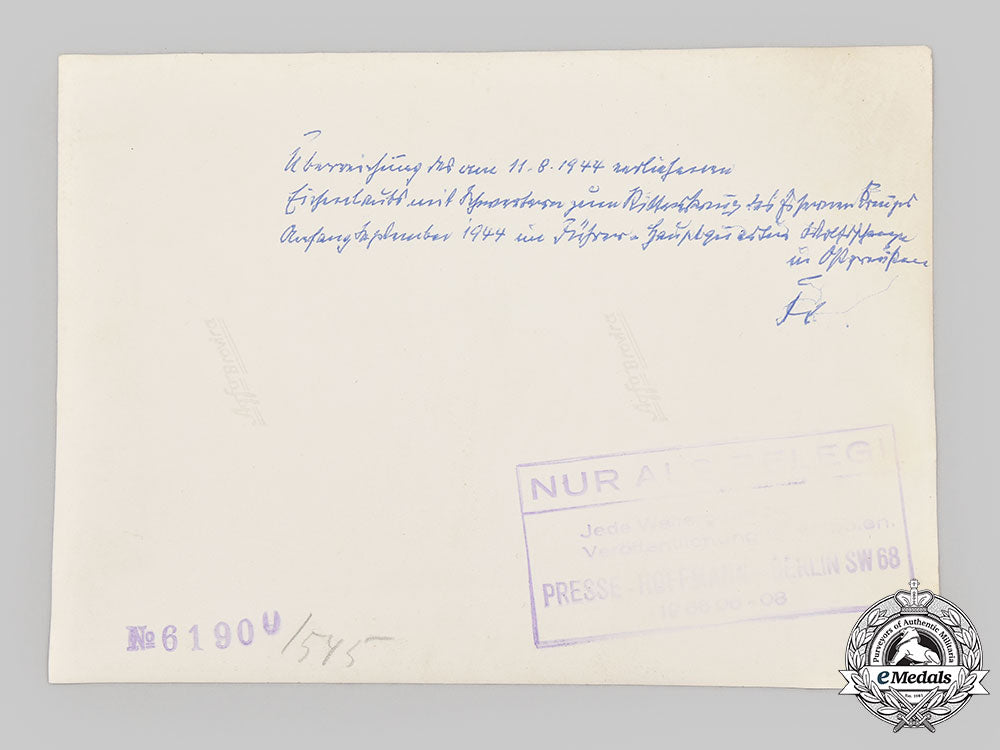 Überreichung des am 11.8.1944 verliehenen
Eichenlaubs mit Schwertern zum Ritterkreuz des Eisernen Kreuzes
Anfang September 1944 im Führer-Hauptquartier Wolfsschanze
in Ostpreußen
Agfa-Brovira
Agfa-Brovira
NUR ALS BELEG!
Jede
Veröffentlichung
PRESSE-HOFFMANN BERLIN SW 68
№ 6190 U /545
Purveyors of Authentic Militaria
eMedals